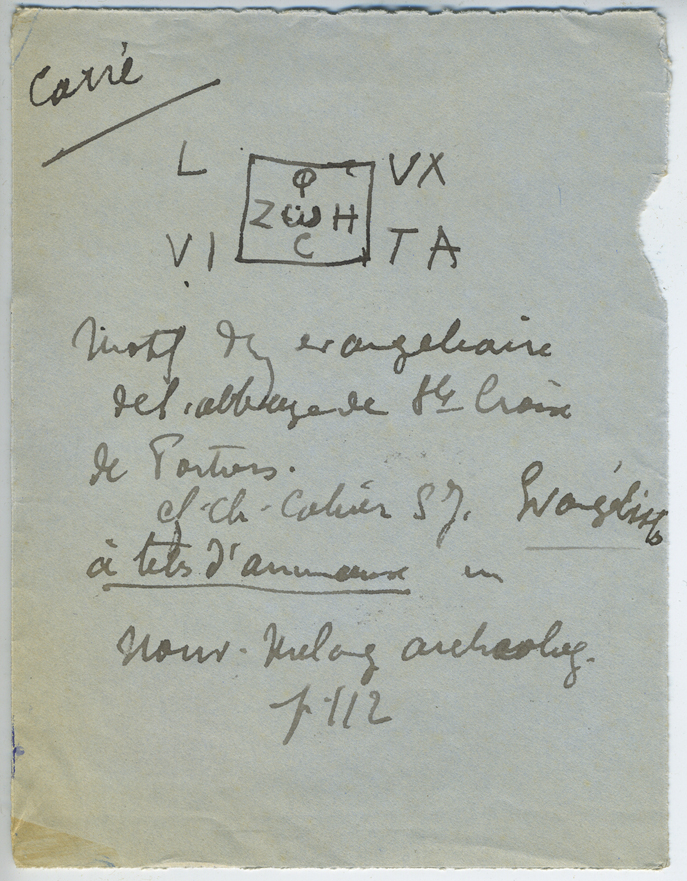 Carré
L Φ VX
Z ω H
VI C TA
Motif de evangeliaire
de l'abbaye de Ste Croix
de Poitiers.
cf. Ch. Cahier S J. Evangélistes
à têtes d'animaux in
Nouv. Melang archeolog.
p. 112